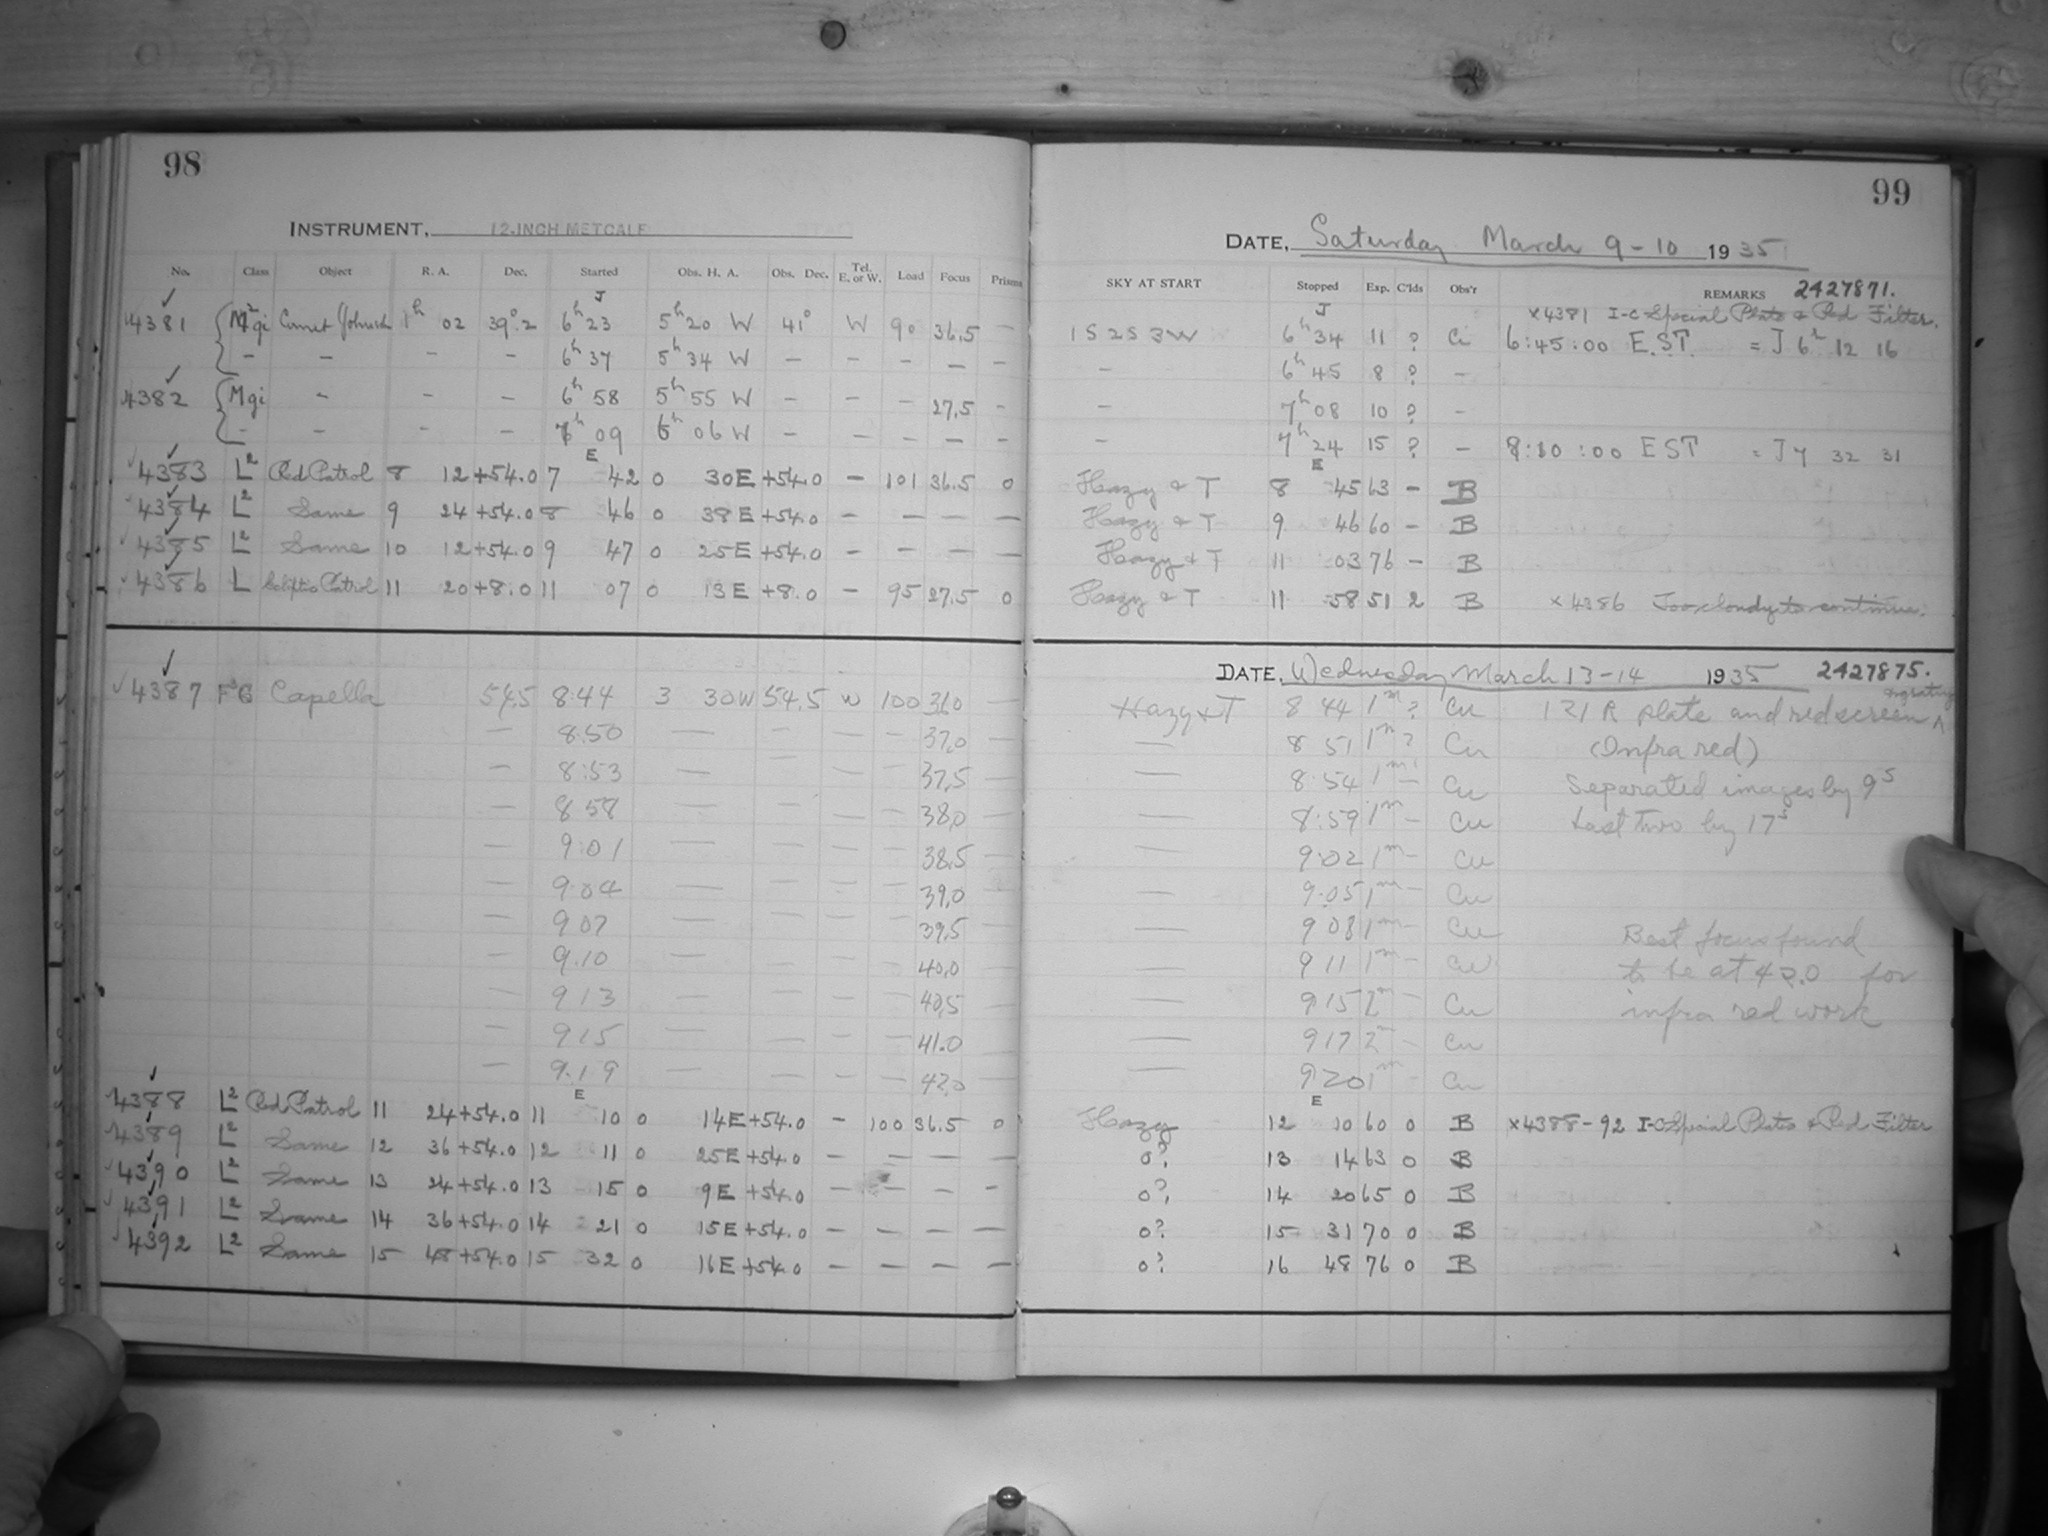 98
INSTRUMENT, 12-INCH METCALF
No. Class Object R. A. Dec. Started Obs. H. A. Obs. Dec. Tel. E. or W. Load Focus Prisms
J
4381 Mgi Comet 1h 02 39°.2 6h 23 5h 20 W 41° W 90 36.5 —
— — — — 6h 37 5h 34 W — — — — —
4382 Mgi — — — 6h 58 5h 55 W — — — 27.5 —
— — — — 7h 09 6h 06 W — — — — —
E
4383 L2 Red Patrol 8 12 +54.0 7 42 0 30E +54.0 — 101 36.5 0
4384 L2 Same 9 24 +54.0 8 46 0 38E +54.0 — — — —
4385 L2 Same 10 12 +54.0 9 47 0 25E +54.0 — — — —
4386 L Ecliptic Patrol 11 20 +8.0 11 07 0 13E +8.0 — 95 27.5 0
4387 Capella 54.5 8:44 3 30W 54.5 W 100 —
— 8:50 — — — — 37.0 —
— 8:53 — — — — 37.5 —
— 8 58 — — — — 38.0 —
— 9:01 — — — — 38.5 —
— 9:04 — — — — 39.0 —
— 9 07 — — — — 39.5 —
— 9.10 — — — — 40.0 —
— 9 13 — — — — 40.5 —
— 9 15 — — — — 41.0 —
— 9.19 — — — — 42.0 —
E
4388 L2 Red Patrol 11 24 +54.0 11 10 0 14E +54.0 — 100 36.5 0
4389 L2 Same 12 36 +54.0 12 11 0 25E +54.0 — — — —
4390 L2 Same 13 24 +54.0 13 15 0 9E +54.0 — — — —
4391 L2 Same 14 36 +54.0 14 21 0 15E +54.0 — — — —
4392 L2 Same 15 48 +54.0 15 32 0 16E +54.0 — — — —
99
DATE, Saturday March 9-10 1935
SKY AT START Stopped Exp. C'lds Obs'r REMARKS 2427871.
J
×4381 I-C Special Plate & Red Filter.
1S 2S 3W 6h 34 11 ? 6:45:00 E.S.T. = J 6h 12 16
— 6h 45 8 ? —
— 7h 08 10 ? —
— 7h 24 15 ? — 8:10:00 EST = J 7 32 31
E
Hazy & T 8 45 63 — B
Hazy & T 9 46 60 — B
Hazy & T 11 03 76 — B
Hazy & T 11 58 51 2 B ×4386 Too cloudy to continue.
DATE, Wednesday March 13-14 1935 2427875.
Hazy & T 8 44 1m ? Cu R plate and red screen
— 8 51 1m ? Cu (Infra red)
— 8 54 1m — Cu Separated images by 9s
— 8:59 1m — Cu Last two by 17s
— 9:02 1m — Cu
— 9:05 1m — Cu
— 9 08 1m — Cu Best focus found
— 9 11 1m — Cu to be at 42.0 for
— 9 15 2m — Cu infra red work
— 9 17 2m — Cu
— 9 20 1m — Cu
E
Hazy 12 10 60 0 B ×4388-92 I-C Special Plates & Red Filter
0? 13 14 63 0 B
0? 14 20 65 0 B
0? 15 31 70 0 B
0? 16 48 76 0 B